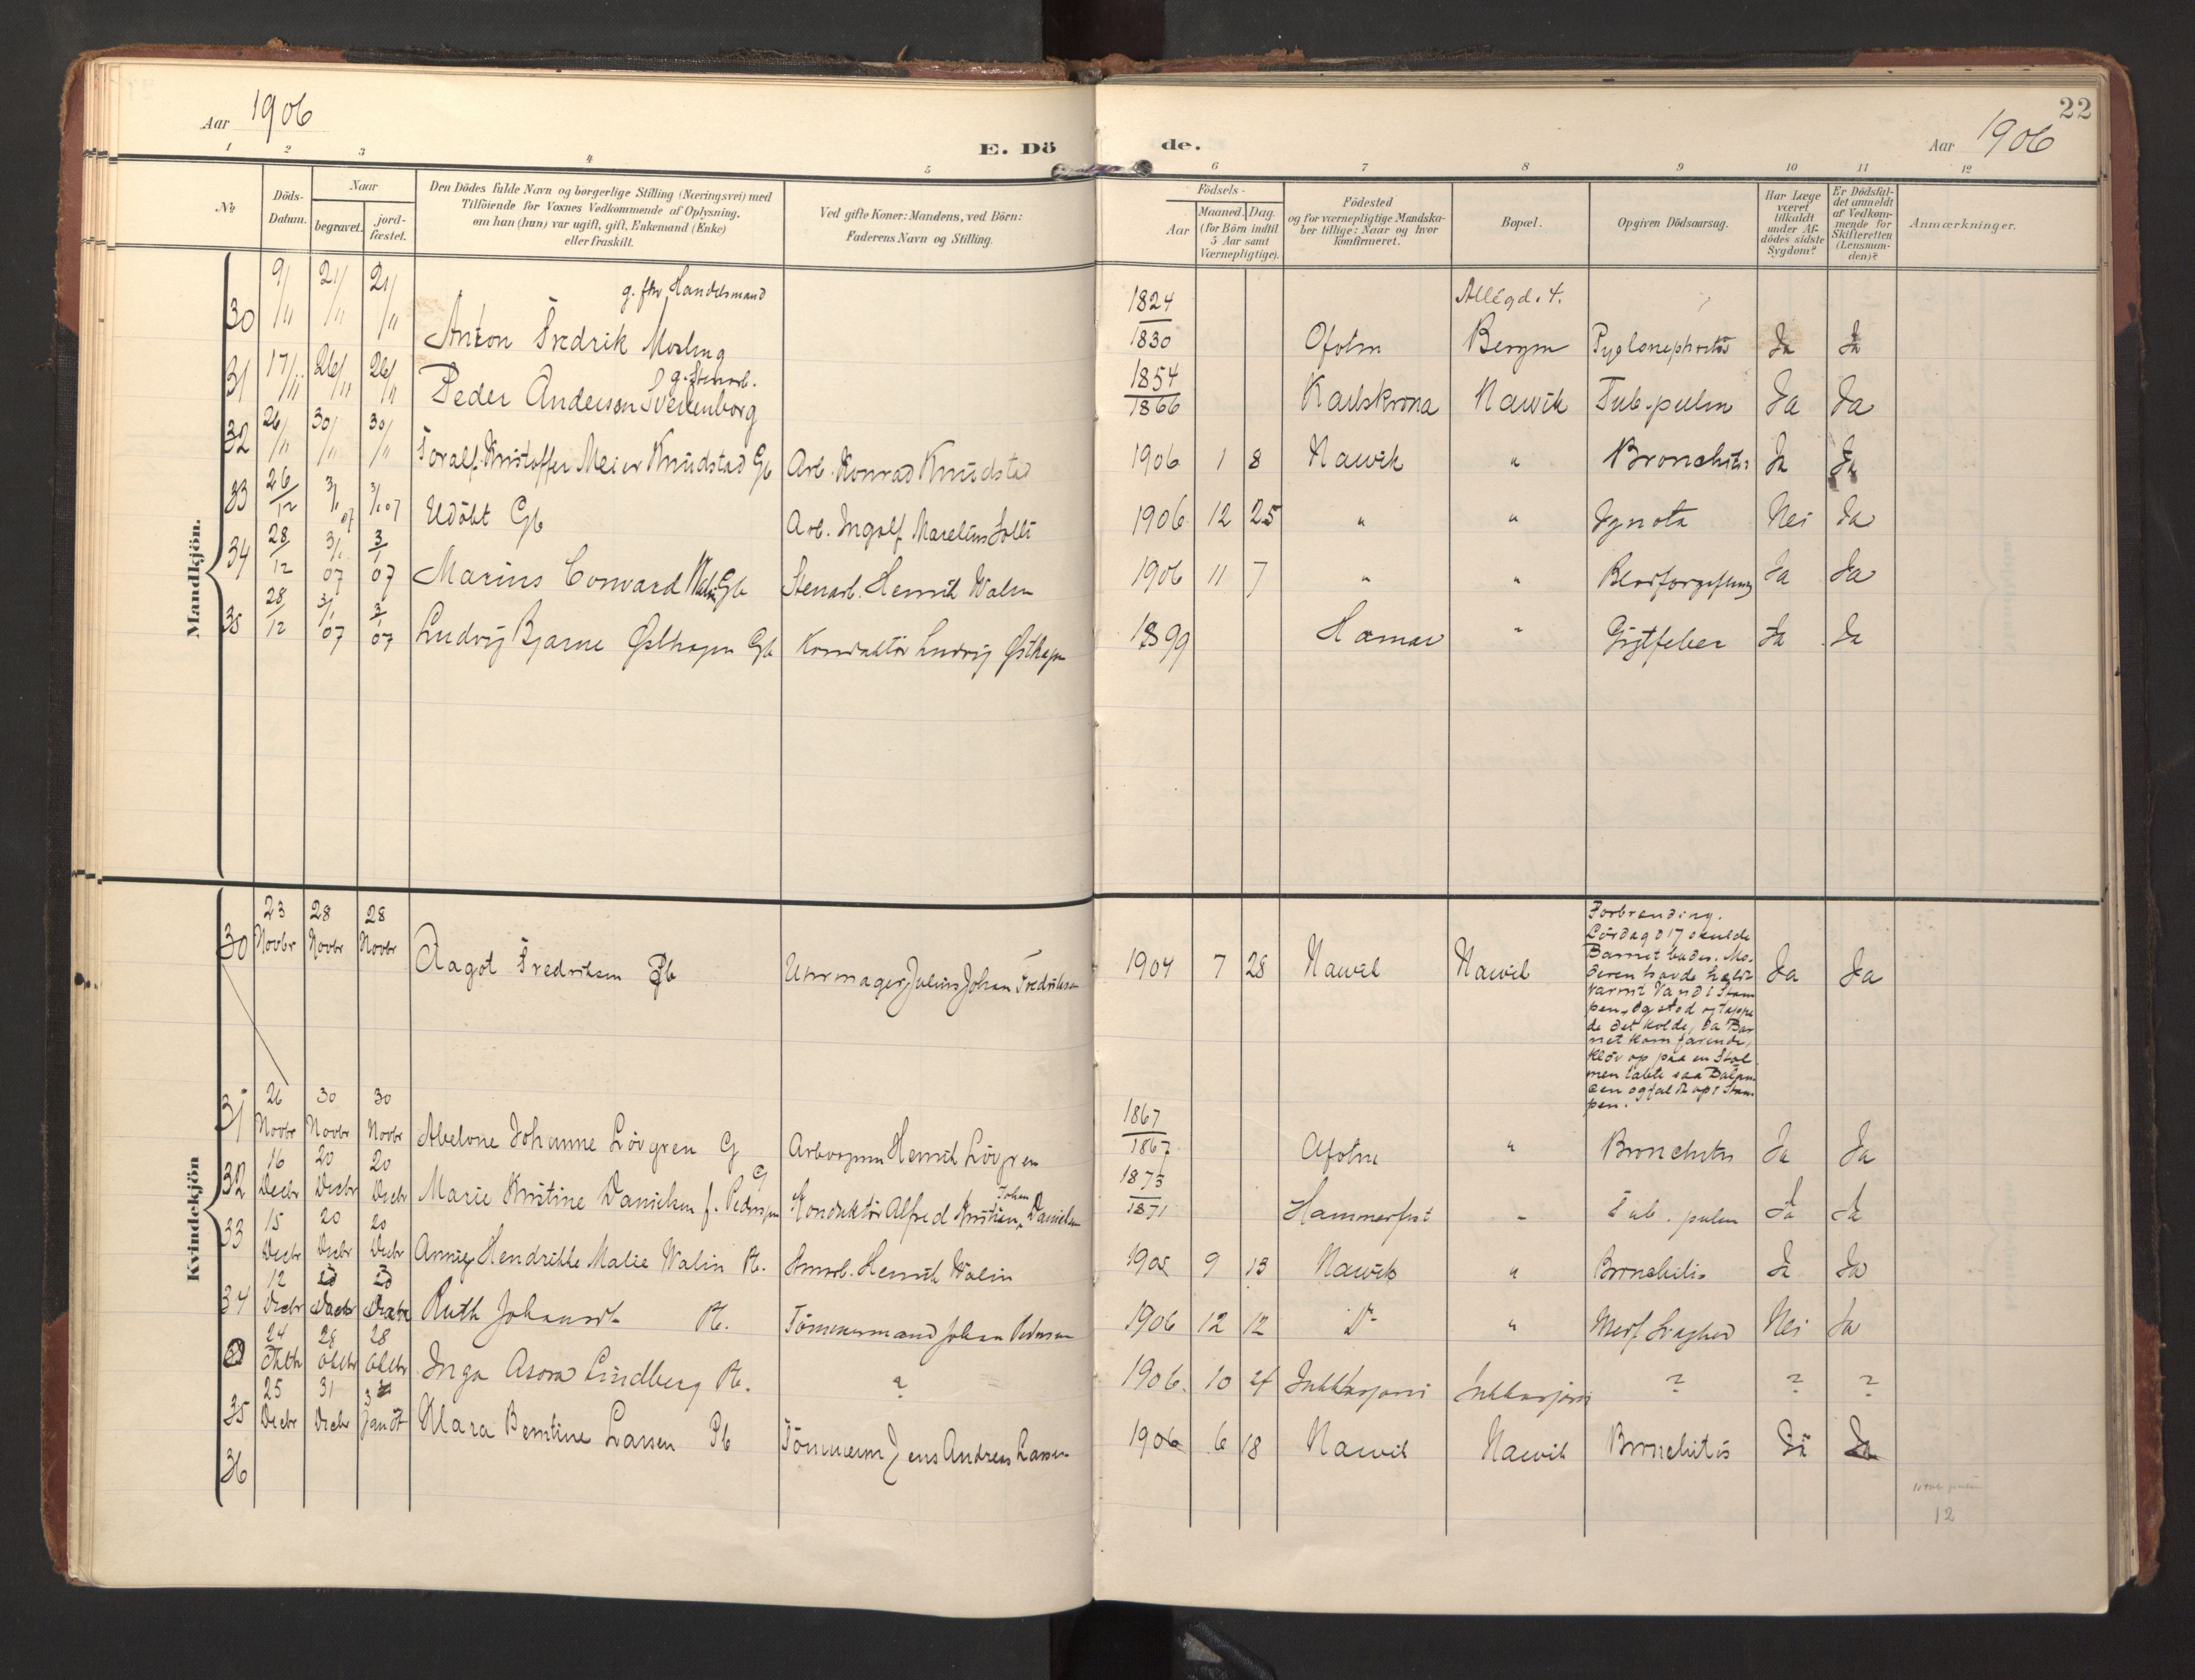 Aar 1906
E. Dö de.
Aar 1906
22
1 2 3 4 5 6 7 8 9 10 11 12
No
Döds-
Datum.
Naar
begravet.
jord-
fæstet.
Den Dödes fulde Navn og borgerlige Stilling (Næringsvei) med
Tilföiende for Voxnes Vedkommende af Oplysning,
om han (hun) var ugift, gift, Enkemand (Enke)
eller fraskilt.
Ved gifte Koner: Mandens, ved Börn:
Faderens Navn og Stilling.
Födsels-
Aar
Maaned. Dag.
(for Börn indtil
5 Aar samt
Værnepligtige).
Födested
og for værnepligtige Mandska-
ber tillige: Naar og hvor
konfirmeret.
Bopæl.
Opgiven Dödsaarsag.
Har Læge
været
tilkaldt
under Af-
dödes sidste
Sygdom?
Er Dödsfal-
det anmeldt
af Vedkom-
mende for
Skifteretten
(Lensman-
den)?
Anmærkninger.
Mandkjön.
g. fhv. Handelsmand 1824 Allégd. 4.
30 9/11 21/11 21/11 Anton Fredrik Mosling 1830 Ofoten Bergen Pyelonephritis Ja Ja
g. Stenarb. 1854
31 17/11 26/11 26/11 Peder Anderson Svedenborg 1866 Karlskrona Narvik Tub. pulm Ja Ja
32 26/11 30/11 30/11 Toralf Kristoffer Meier Knudstad Gb Arb. Konrad Knudstad 1906 1 8 Narvik " Bronchitis Ja Ja
33 26/12 3/1 07 3/1 07 Udöbt Gb Arb. Ingolf Marelius Solli 1906 12 25 " " Ignota Nei Ja
34 28/12 3/1 07 3/1 07 Marius Conrard Walin Gb Stenarb. Henrik Walin 1906 11 7 " " Blodforgiftning Ja Ja
35 28/12 3/1 07 3/1 07 Ludvig Bjarne Østhagen Gb Konduktör Ludvig Østhagen 1899 Hamar " Gigtfeber Ja Ja
Kvindekjön
30 23 Novbr 28 Novbr 28 Novbr Aagot Fredriksen Pb Uhrmager Julius Johan Fredriksen 1904 7 28 Narvik Narvik Ja Ja
Forbrending.
Lördag d 17 skulde
Barnet bades. Mo-
deren havde hældt
varmt Vand i Stam
pen, og stod og tappe
de det kolde, da Bar
net kom farende,
klöv op paa en Stol
men tabte saa Balan
cen og faldt op i Stam
pen.
31 26 Novbr 30 Novbr 30 Novbr Abelone Johanne Lövgren G Arbeismn Henrik Lövgren 1867 1867 Ofoten " Bronchitis Ja Ja
32 16 Decbr 20 Decbr 20 Decbr Marie Kristine Danielsen f. Pedersen G Konduktör Alfred Kristian Johan Danielsen 1873 1871 Hammerfest " Tub. pulm Ja Ja
33 15 Decbr 20 Decbr 20 Decbr Anny Hendrikke Malie Walin Pb. Stenarb. Henrik Walin 1905 9 13 Narvik " Bronchitis Ja Ja
34 12 Decbr 20 Decbr 20 Decbr Ruth Johansdt Pb. Tömmermand Johan Pedersen 1906 12 12 Do " Medf Svaghed Nei Ja
24 Oktbr 28 Oktbr 28 Oktbr Inga Asora Lindberg Pb. ? 1906. 10 4 Jukkasjärvi Jukkasjärvi ? ? ?
35 25 Decbr 31 Decbr 3 Jan 07 Klara Berntine Larsen Pb Tömmerm Jens Andreas Larsen 1906 6 18 Narvik Narvik Bronchitis Ja Ja
36
12